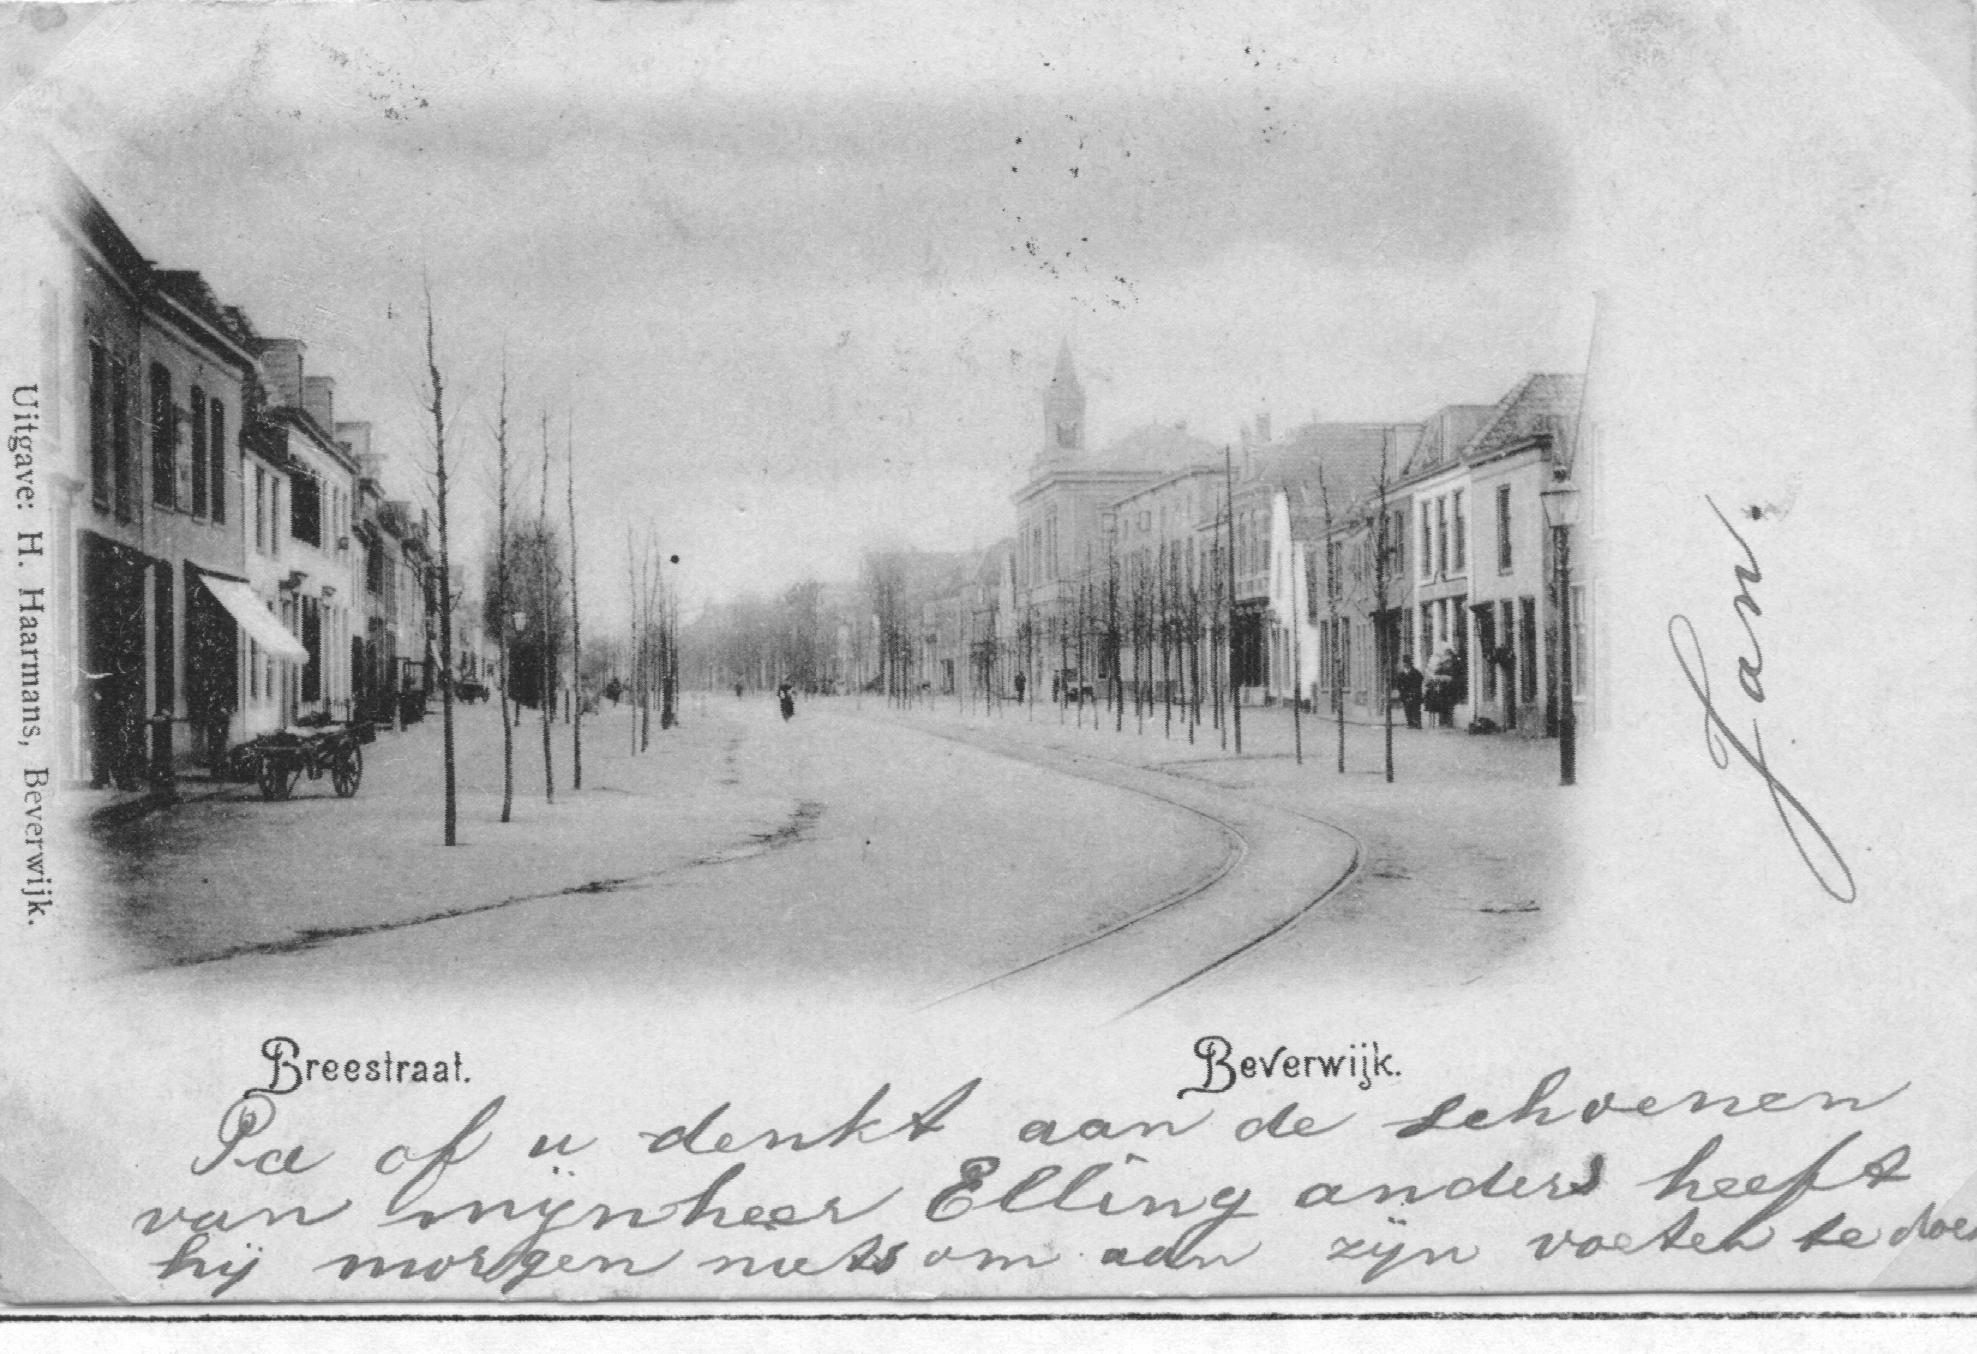 Uitgave: H. Haarmans, Beverwijk.
Jan.
Breestraat. Beverwijk.
Pa of u denkt aan de schoenen
van mijnheer Elling anders heeft
hij morgen niets om aan zijn voeten te doen